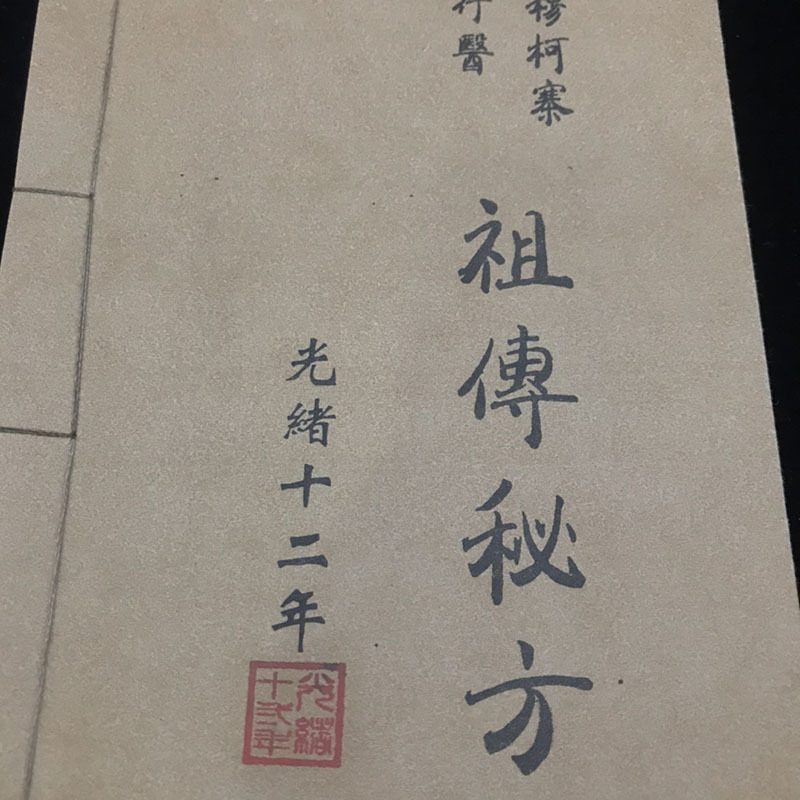 穆柯寨
行醫
祖傳秘方
光緒十二年
光緒
十二年